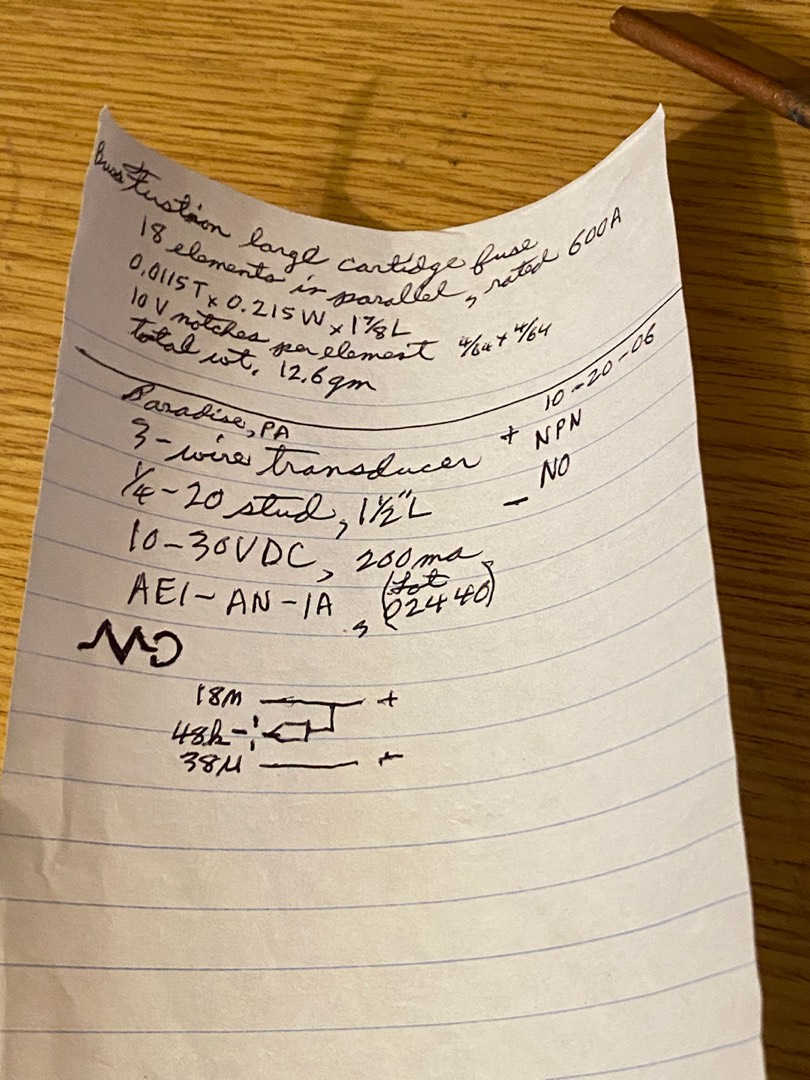 Buss Fustron large cartidge fuse
18 elements in parallel, rated 600A
0.0115T x 0.215W x 1 7/8 L
10 V notches per element 4/64 + 4/64
total wt. 12.6gm
10-20-06
Paradise, PA
3-wire transducer + NPN
1/4-20 stud, 1 1/2" L - NO
10-30VDC, 200ma
AE1-AN-1A, (Lot 02440)
18M +
48k
38M